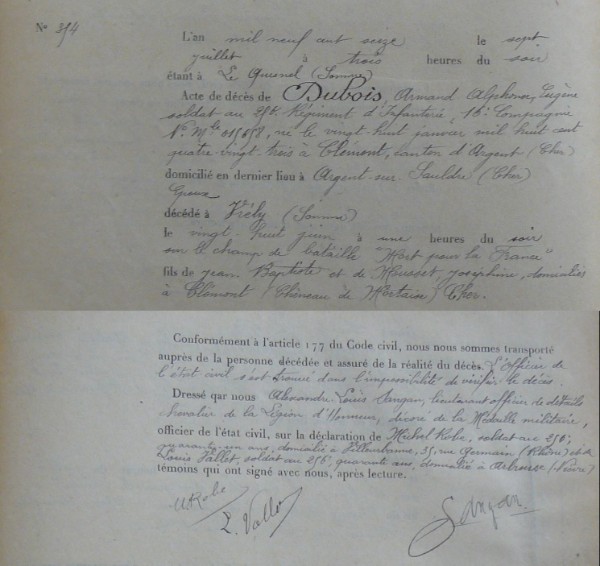 N° 394
L'an mil neuf cent seize le sept
juillet à trois heures du soir
étant à Le Quesnel (Somme)
Acte de décès de Dubois, Armand Alphonse, Eugène
soldat au Régiment d'Infanterie, 18e Compagnie
N° Mle né le vingt huit janvier mil huit cent
quatre-vingt-trois à Clémont, canton d'Argent (Cher)
domicilié en dernier lieu à Argent-sur-Sauldre (Cher)
décédé à Vrély (Somme)
le vingt huit juin à une heures du soir
sur le champ de bataille "Mort pour la France"
fils de Jean Baptiste et de Musset Joséphine, domiciliés
à Clémont (Cheneau de Mortaise) Cher.
Conformément à l'article 177 du Code civil, nous nous sommes transporté
auprès de la personne décédée et assuré de la réalité du décès. L'officier de
l'état civil s'est trouvé dans l'impossibilité de vérifier le décès.
Dressé qar nous Alexandre Louis Sangan, lieutenant officier de détails
chevalier de la Légion d'Honneur, décoré de la Médaille militaire,
officier de l'état civil, sur la déclaration de Michel Robe, soldat au 256e,
quarante-un ans, domicilié à Villeurbanne, 35, rue Germain (Rhône) et de
Louis Vallet, soldat au 256e, quarante ans, domicilié à (Nièvre)
témoins qui ont signé avec nous, après lecture.
MRobe
L. Vallet
Sangan